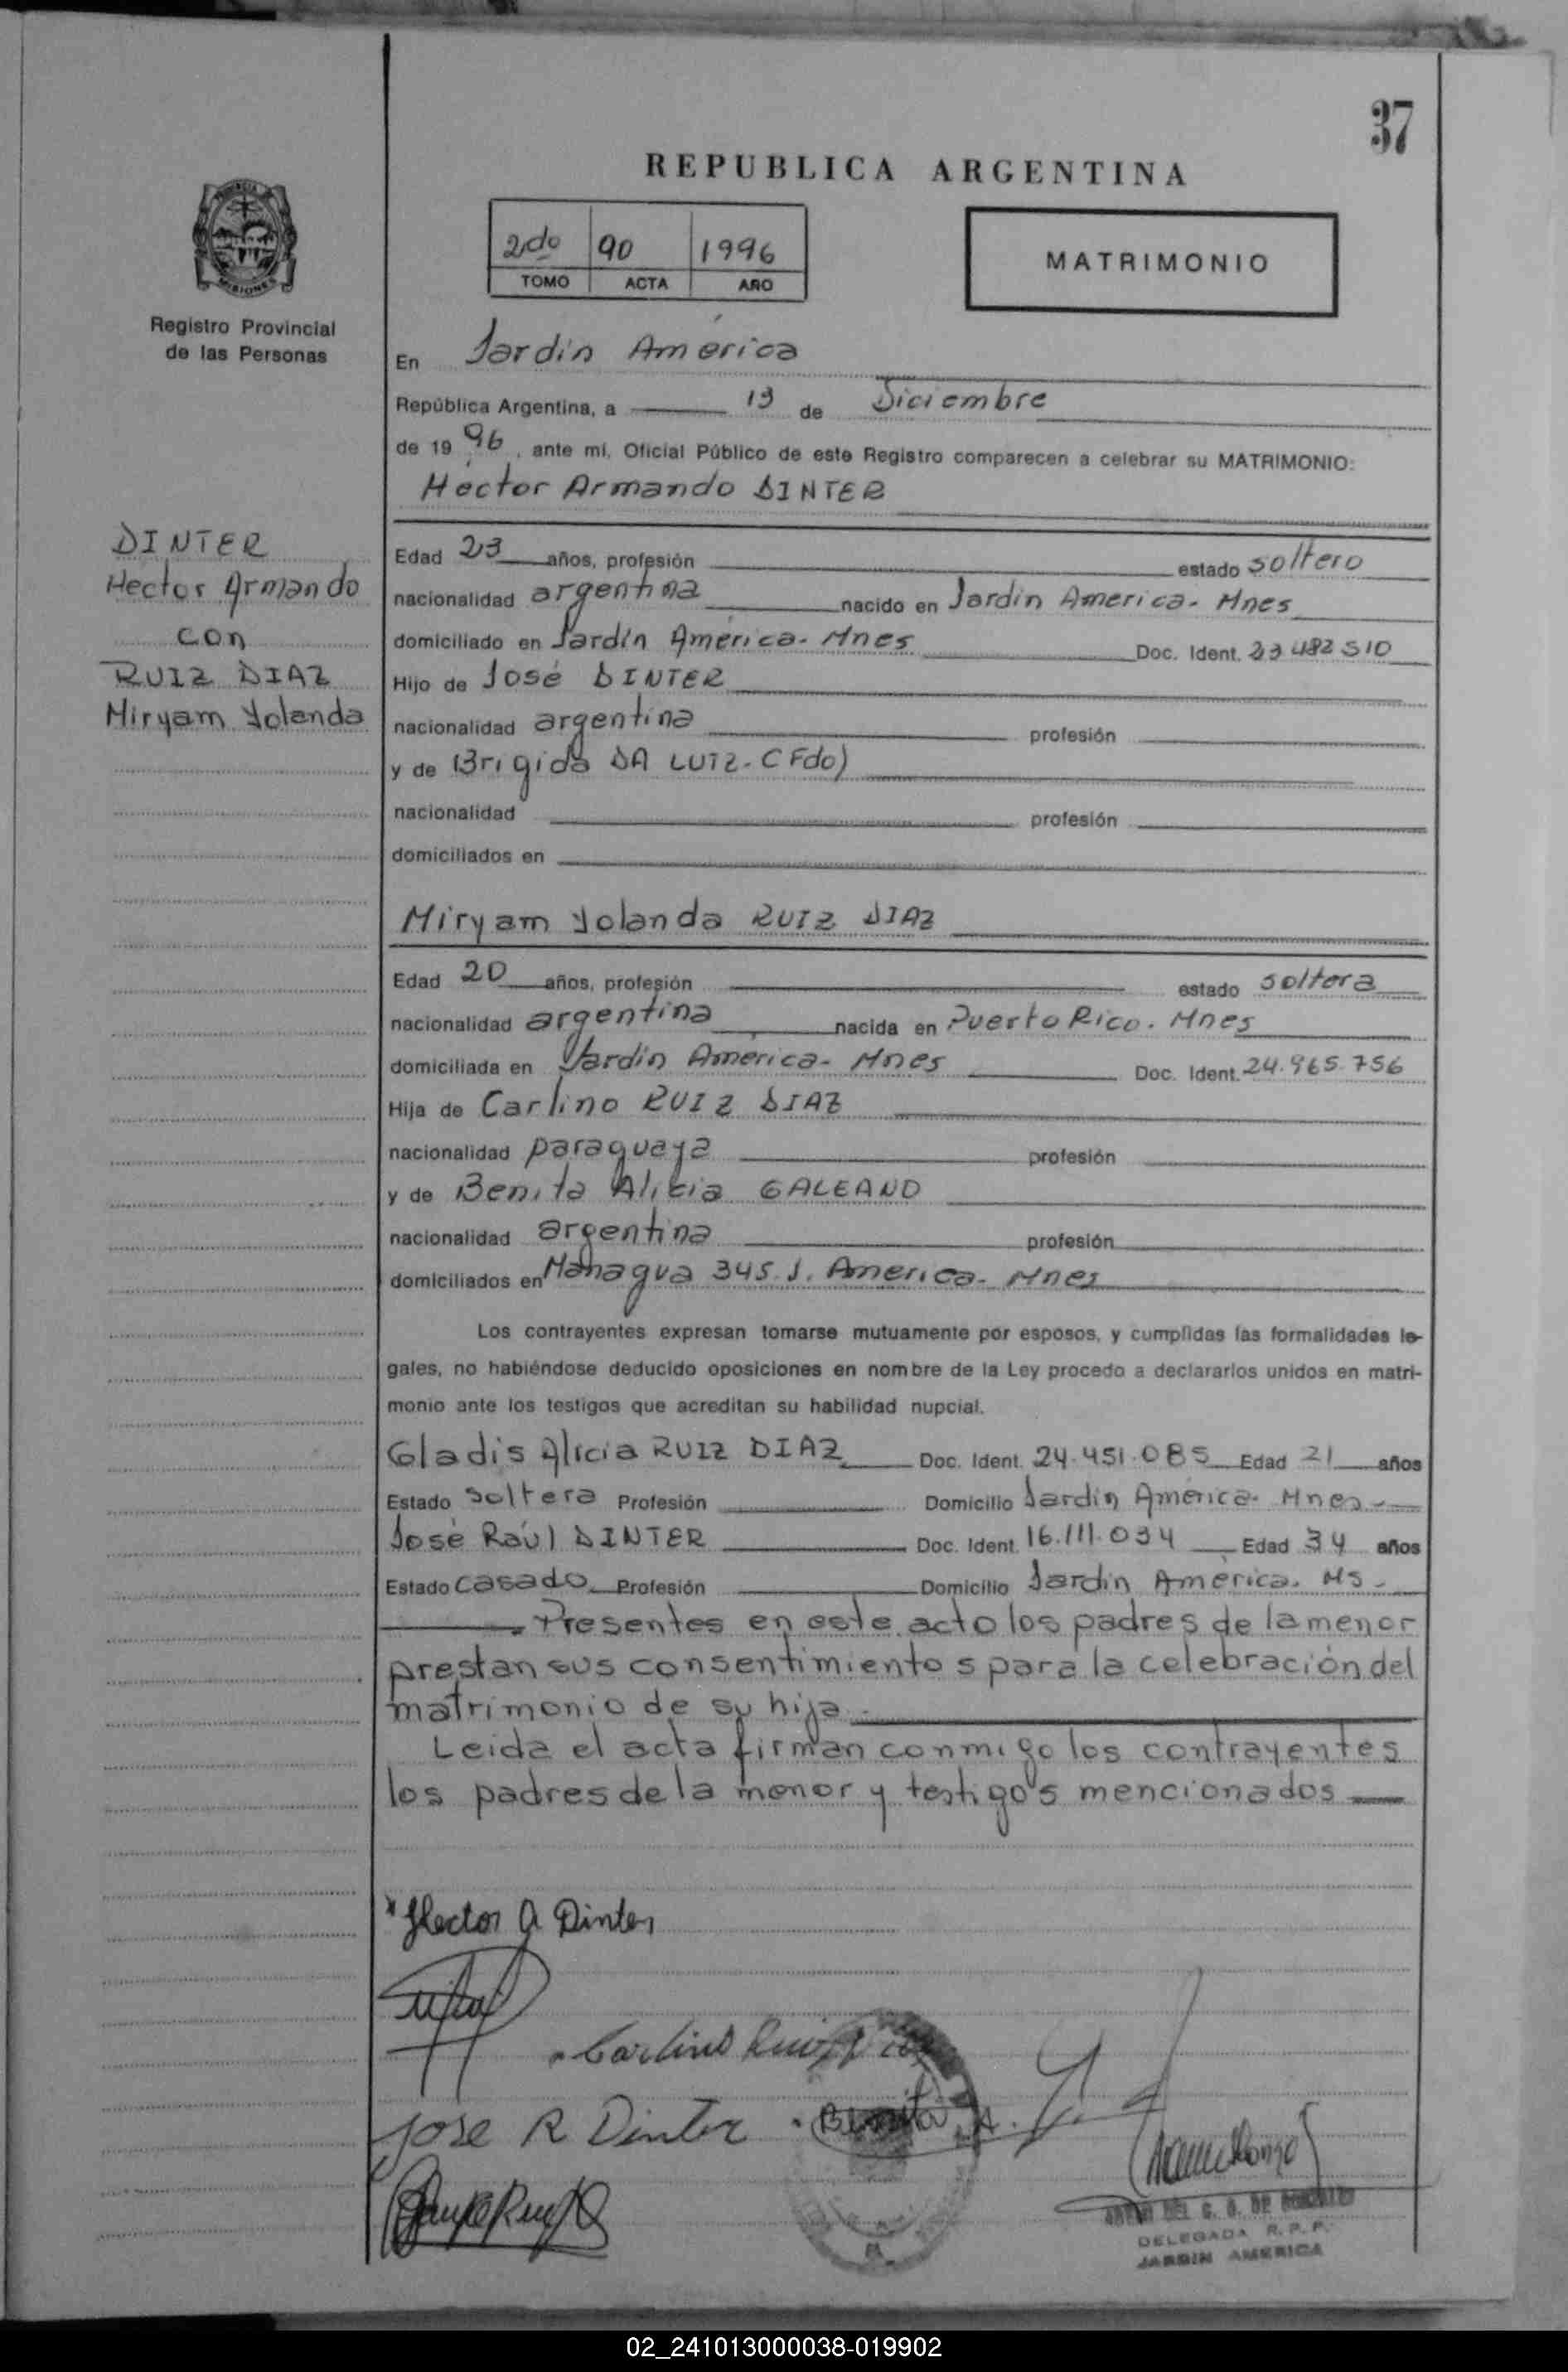 37
REPUBLICA ARGENTINA
2do 90 1996
TOMO ACTA AÑO
MATRIMONIO
PROVINCIA DE
MISIONES
Registro Provincial
de las Personas
En Jardín América
República Argentina, a 13 de Diciembre
de 1996, ante mí, Oficial Público de este Registro comparecen a celebrar su MATRIMONIO:
Héctor Armando DINTER
DINTER
Hector Armando
con
RUIZ DIAZ
Miryam Yolanda
Edad 23 años, profesión estado soltero
nacionalidad argentina nacido en Jardín America- Mnes
domiciliado en Jardín América- Mnes Doc. Ident. 23 482 510
Hijo de José DINTER
nacionalidad argentina profesión
y de Brigida DA LUIZ- (Fdo)
nacionalidad profesión
domiciliados en
Miryam Yolanda RUIZ DIAZ
Edad 20 años, profesión estado soltera
nacionalidad argentina nacida en Puerto Rico. Mnes
domiciliada en Jardín América- Mnes Doc. Ident. 24.965.756
Hija de Carlino RUIZ DIAZ
nacionalidad paraguaya profesión
y de Benita Alicia GALEANO
nacionalidad argentina profesión
domiciliados en Managua 345. J. America- Mnes
Los contrayentes expresan tomarse mutuamente por esposos, y cumplidas las formalidades le-
gales, no habiéndose deducido oposiciones en nombre de la Ley procedo a declararlos unidos en matri-
monio ante los testigos que acreditan su habilidad nupcial.
Gladis Alicia RUIZ DIAZ Doc. Ident. 24.451.085 Edad 21 años
Estado soltera Profesión Domicilio Jardín América- Mnes-
José Raúl DINTER Doc. Ident. 16.111.034 Edad 34 años
Estado casado Profesión Domicilio Jardín América. Ms-
Presentes en este acto los padres de la menor
prestan sus consentimientos para la celebración del
matrimonio de su hija
Leida el acta firman conmigo los contrayentes
los padres de la menor y testigos mencionados
Hector A Dinter
Carlino Ruiz
Jose R Dinter
Benita A.
DELEGADA R.P.P.
JARDIN AMERICA
02_241013000038-019902